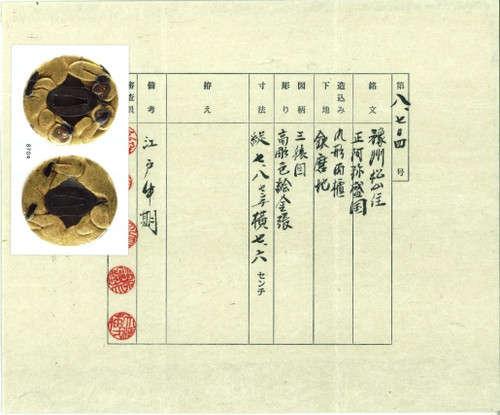 第 八、七〇四 号
銘文 豫州松山住
正阿弥盛国
造込み 丸形両櫃
下地 鉄磨地
図柄 三猿図
彫り 高彫色絵金張
寸法 縦七.八センチ横七.六センチ
拵え
備考 江戸中期
審査員
8704